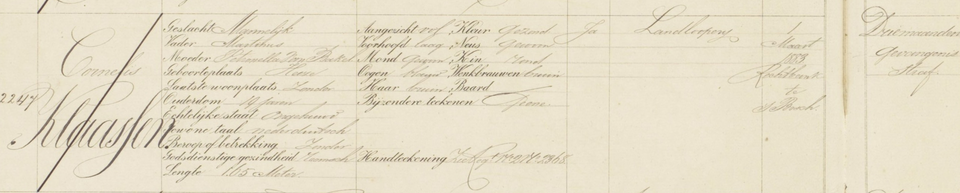 2247
Cornelis
Klaassen
Geslacht Mannelijk
Vader Martinus
Moeder Petronella van
Geboorteplaats
Laatste woonplaats Zonder
Ouderdom jaren
Echtelijke staat Ongehuwd
Gewone taal Nederduitsch
Beroep of betrekking Zonder
Godsdienstige gezindheid Roomsch
Lengte 1.65 Meter
Aangezicht rof Kleur Gezond
Voorhoofd laag Neus Gewoon
Mond Gewoon Kin Rond
Oogen blauw Wenkbrauwen bruin
Haar bruin Baard
Byzondere teekenen Geene
Handteekening Zie Reg
Ja
Landlooperij
1
Maart
Rechtbank
te
's Bosch
Drie maanden
Gevangenis
straf